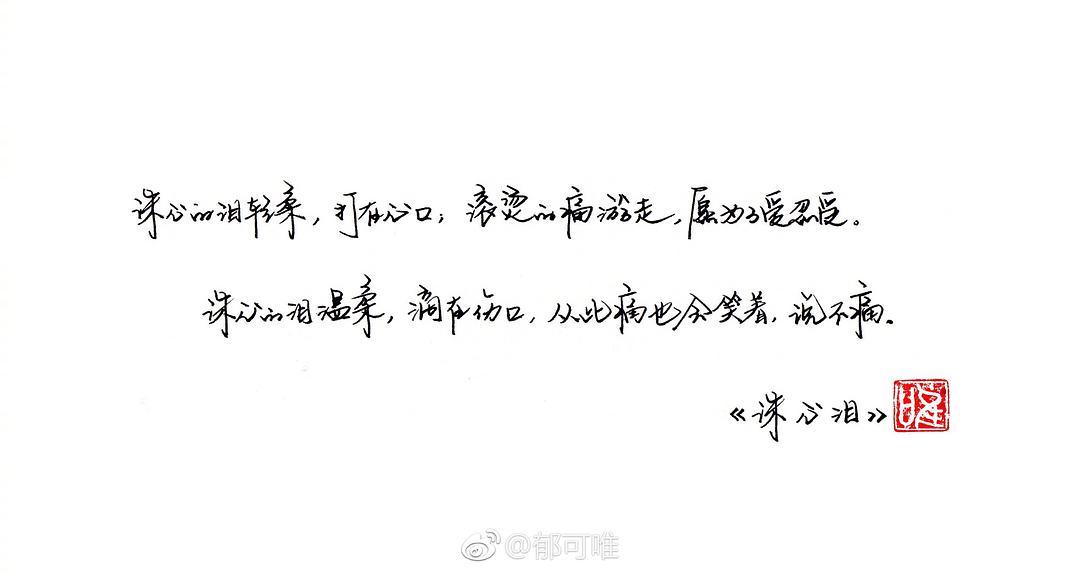 诛心的泪轻柔，打在心口；滚烫的痛游走，愿为了爱忍受。
诛心的泪温柔，滴在伤口，从此痛也会笑着，说不痛。
《诛心泪》
唯
@郁可唯